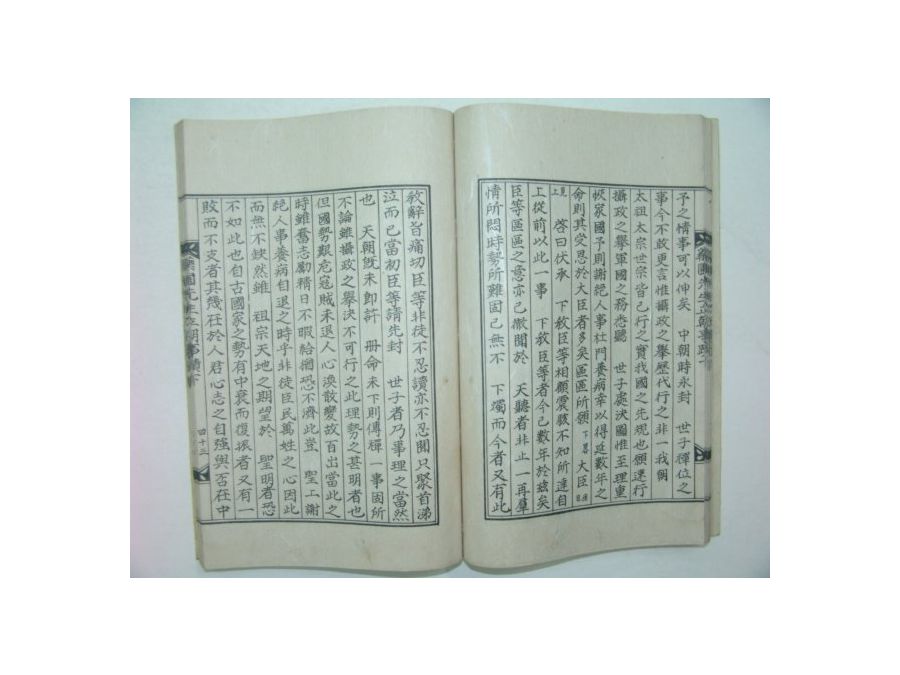 予之情事可以伸矣 中朝時永封 世子禪位之
事今不敢更言惟攝政之擧歷代行之非一我朝
太祖太宗世宗皆已行之實我國之先規也願遄行
攝政之擧軍國之務悉聽 世子處決國惟至理重
恢家國予則謝絕人事杜門養病幸以得延數年之
命則其受恩於大臣者多矣區區所願 大臣
上 啓曰伏承 下敎臣等相顧震駭不知所達自
上從前以此一事 下敎臣等今已數年於玆矣
臣等區區之意亦已徹聞於 天聽者非止一再羣
情所悶時勢所難固已無不 下燭而今者又有此
敎辭旨痛切臣等非徒不忍讀亦不忍聞只聚首涕
泣而已當初臣等請先封 世子者乃事理之當然
也 天朝旣未卽許 冊命未下則傳禪一事固所
不論雖攝政之擧決不可行之此理勢之甚明者也
但國勢艱危寇賊未退人心渙散變故百出當此之
時雖奮志勵精日不暇給猶恐不濟此豈 聖上謝
絕人事養病自退之時乎非徒臣民萬姓之 心因此
而無不缺然雖 祖宗天地之期望於 聖明者恐
不如此也自古國家之勢有中衰而復振者又有一
敗而不支者其幾在於人君心志之自强與否在中
四十三